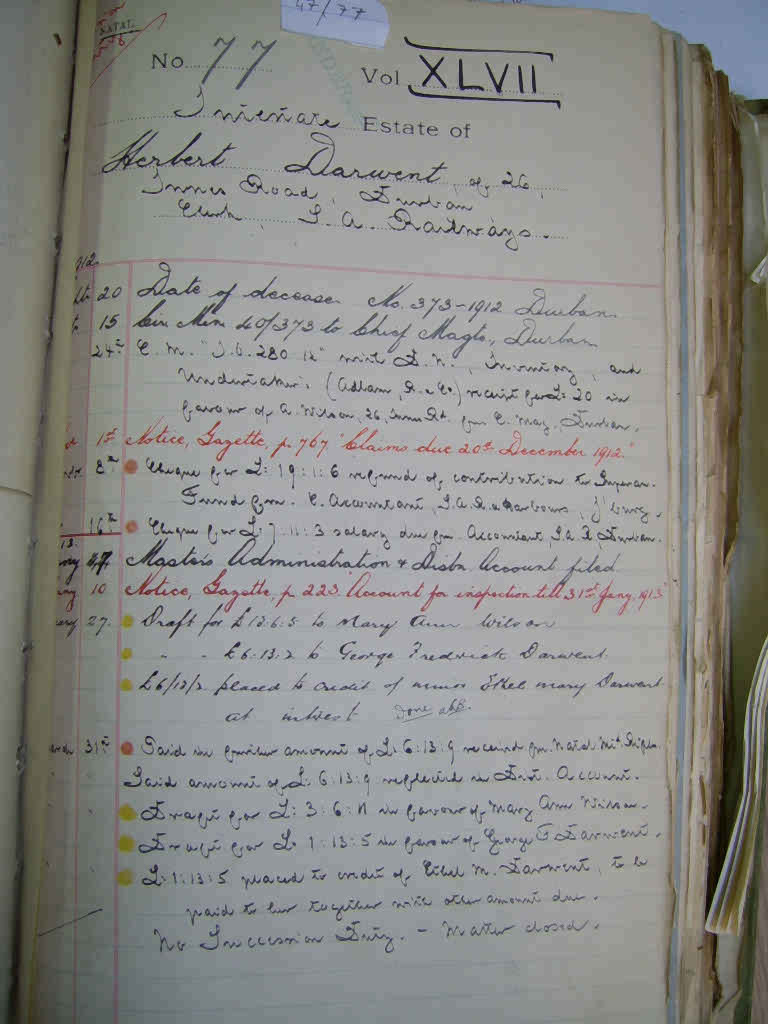 47/77
NATAL
No 77 Vol XLVII
Intestate Estate of
Herbert Darwent, of 26,
Innes Road, Durban
Clerk, S. A. Railways.
1912
20 Date of decease. No. 373-1912 Durban
15 Cir. Min 40/373 to Chief Magte, Durban
24th C. M. "J.C. 280.12" with D.N., Inventory, and
Undertaker's (Adlam, R. & Co.) receipt for £: 20 in
favour of A. Wilson, 26, Innes Rd. fm C. Mag. Durban.
1st Notice, Gazette, p. 767 "Claims due 20th December 1912."
8th Cheque for £: 19: 1: 6 refund of contribution to Superan.
Fund fm. C. Accountant, S.A.R. & Harbours, J'burg.
16th Cheque for £: 7: 11: 3 salary due fm Accountant, S.A.R. Durban.
17. Master's Administration & Distn Account filed
10 Notice, Gazette, p 223. Account for inspection till 31st Jany, 1913."
27. Draft for £13:6:5 to Mary Ann Wilson
" " £6:13:2 to George Fredrick Darwent
£6/13/2 placed to credit of minor Ethel Mary Darwent
at interest Done
31st Paid in further amount of £: 6:13:9 received fm. Natal Mtd. Rifles.
Said amount of £: 6:13:9 reflected in Dist. Account.
Draft for £: 3:6:11 in favour of Mary Ann Wilson.
Draft for £: 1:13:5 in favour of George F Darwent.
£: 1:13:5 placed to credit of Ethel M. Darwent, to be
paid to her together with other amount due.
No Succession Duty. - Matter closed.